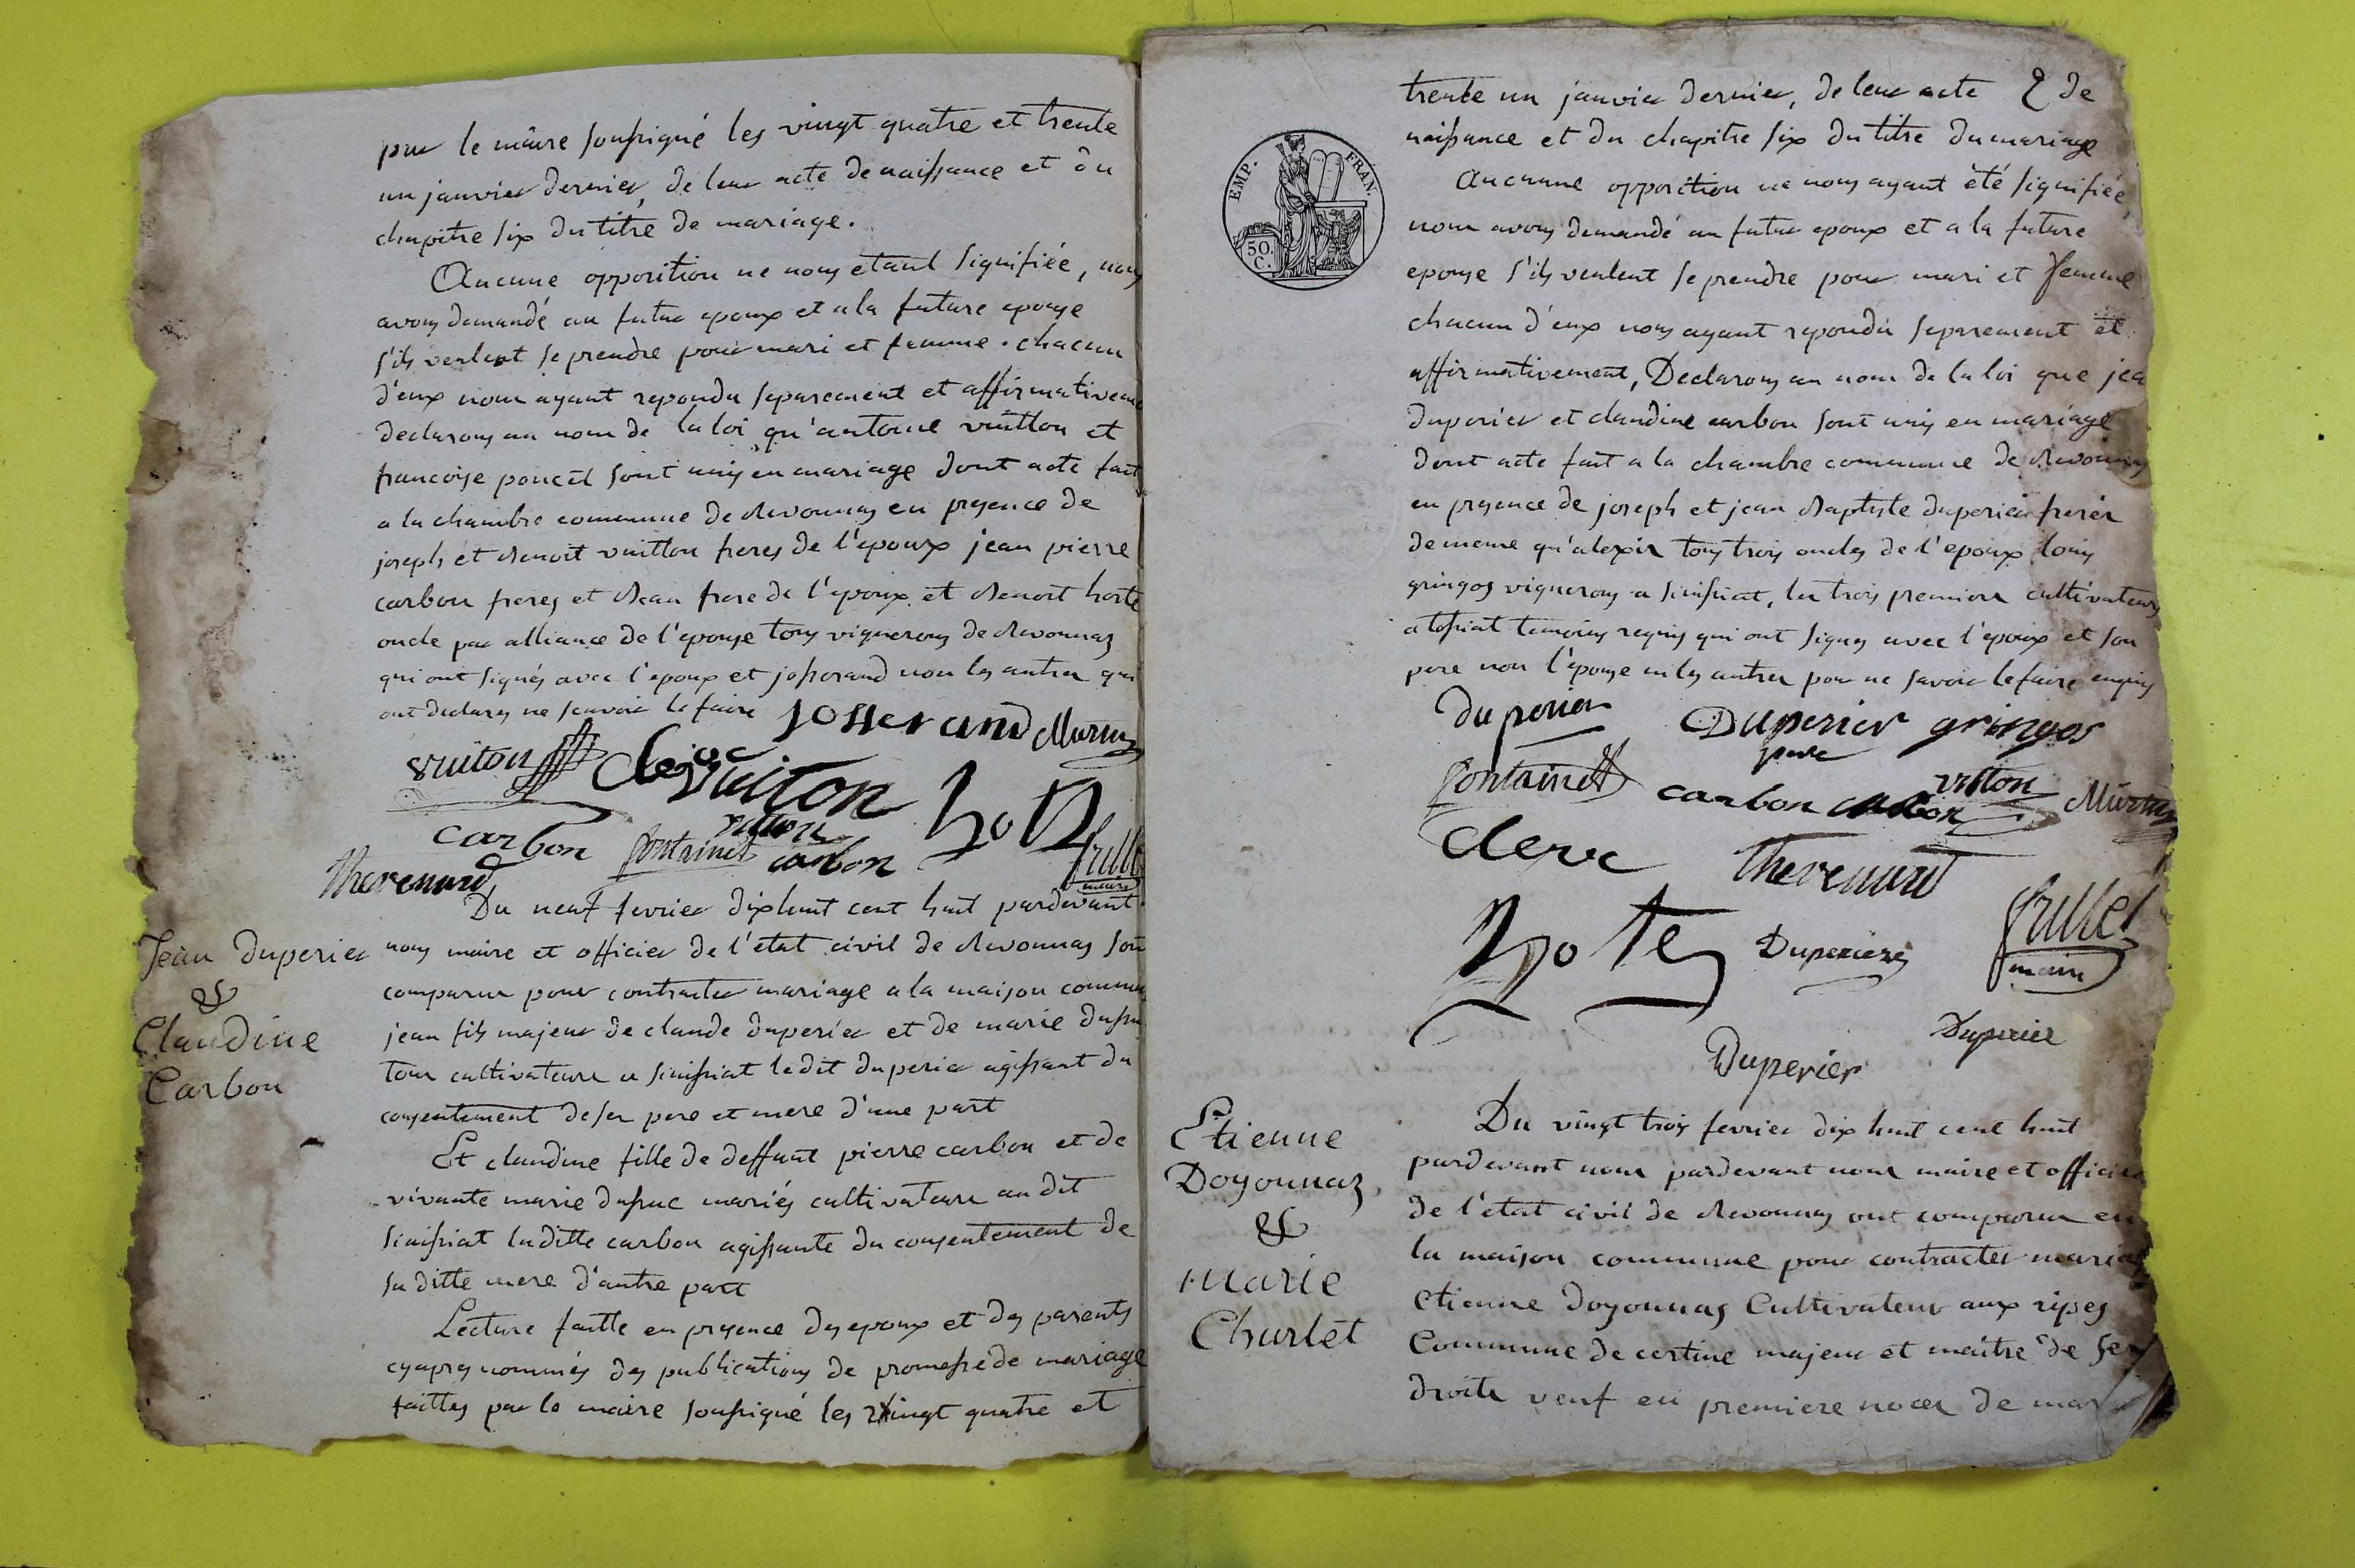 par le maire soussigné les vingt quatre et trente
un janvier dernier, de leur acte de naissance et du
chapitre six du titre de mariage.
Aucune opposition ne nous etant signifiée, nous
avons demandé au futur epoux et a la future epouse
s'ils veulent se prendre pour mari et femme. chacun
d'eux nous ayant repondu separement et affirmativem
declarons au nom de la loi qu'antoine vuitton et
francoise poncet sont unis en mariage dont acte fait
a la chambre commune de Revonnas en presence de
joseph et Benoit vuitton freres de l'epoux jean pierre
carbon freres et Beau frere de l'epoux et Benoit hote
oncle par alliance de l'epouse tous vignerons de Revonnas
qui ont signés avec l'epoux et josserand non les autres qui
ont declarés ne scavoir le faire josserand
vuiton Clerc Vuiton hote
carbon fontainet vuiton carbon
thevenard
maire
Du neuf fevrier dix huit cent huit pardevant
Jean Duperier
&
Claudine
Carbon
nous maire et officier de l'etat civil de Revonnas sont
comparus pour contracter mariage a la maison commu
jean fils majeur de claude duperier et de marie
tous cultivateurs a sinissiat ledit duperier agissant du
consentement de ses pere et mere d'une part
Et claudine fille de deffunt pierre carbon et de
vivante marie mariés cultivateurs au dit
sinissiat laditte carbon agissante du consentement de
sa ditte mere d'autre part
Lecture faitte en presence des epoux et des parents
cyapres nommés des publications de promesse de mariage
faittes par le maire soussigné les vingt quatre et
EMP. FRAN.
50
C.
trente un janvier dernier, de leur acte de
naissance et du chapitre six du titre du mariage
Aucunne opposition ne nous ayant été signifiée,
nous avons demandé au futur epoux et a la future
epouse s'ils veulent se prendre pour mari et femme
chacun d'eux nous ayant repondu separement et
affirmativement, Declarons au nom de la loi que jea
duperier et claudine carbon sont unis en mariage
dont acte fait a la chambre commune de Revonnas
en presence de joseph et jean Baptiste duperier freres
de meme qu'alexis tous trois oncles de l'epoux louis
gringos vignerons a sinissiat, les trois premiers cultivateurs
a tossiat temoins requis qui ont signes avec l'epoux et son
pere non l'epouse ni les autres pour ne savoir le faire enquis
duperier Duperier gringos
pere
fontainet carbon carbon vitton
Clerc thevenard
hote Duperier
maire
Duperier
Duperier
Etienne
Doyonnaz
&
Marie
Charlet
Du vingt trois fevrier dix huit cent huit
pardevant nous pardevant nous maire et officier
de l'état civil de Revonnas ont comparus en
la maison commune pour contracter mariag
Etienne Doyonnas Cultivateur aux ripes
Commune de certine majeur et maitre de ses
droits veuf en premiere noces de mar